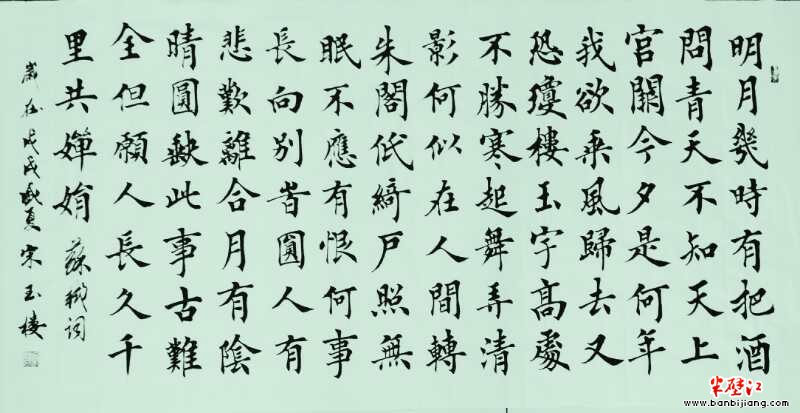 明月幾時有把酒
問青天不知天上
官關今夕是何年
我欲乘風歸去又
恐瓊樓玉宇高處
不勝寒起舞弄清
影何似在人間轉
朱閣低綺戶照無
眠不應有恨何事
長向別旹圓人有
悲歡離合月有陰
晴圓缺此事古難
全但願人長久千
里共嬋娟 蘇軾詞
歲在戊戌夏宋玉樓
半壁江
www.banbijiang.com